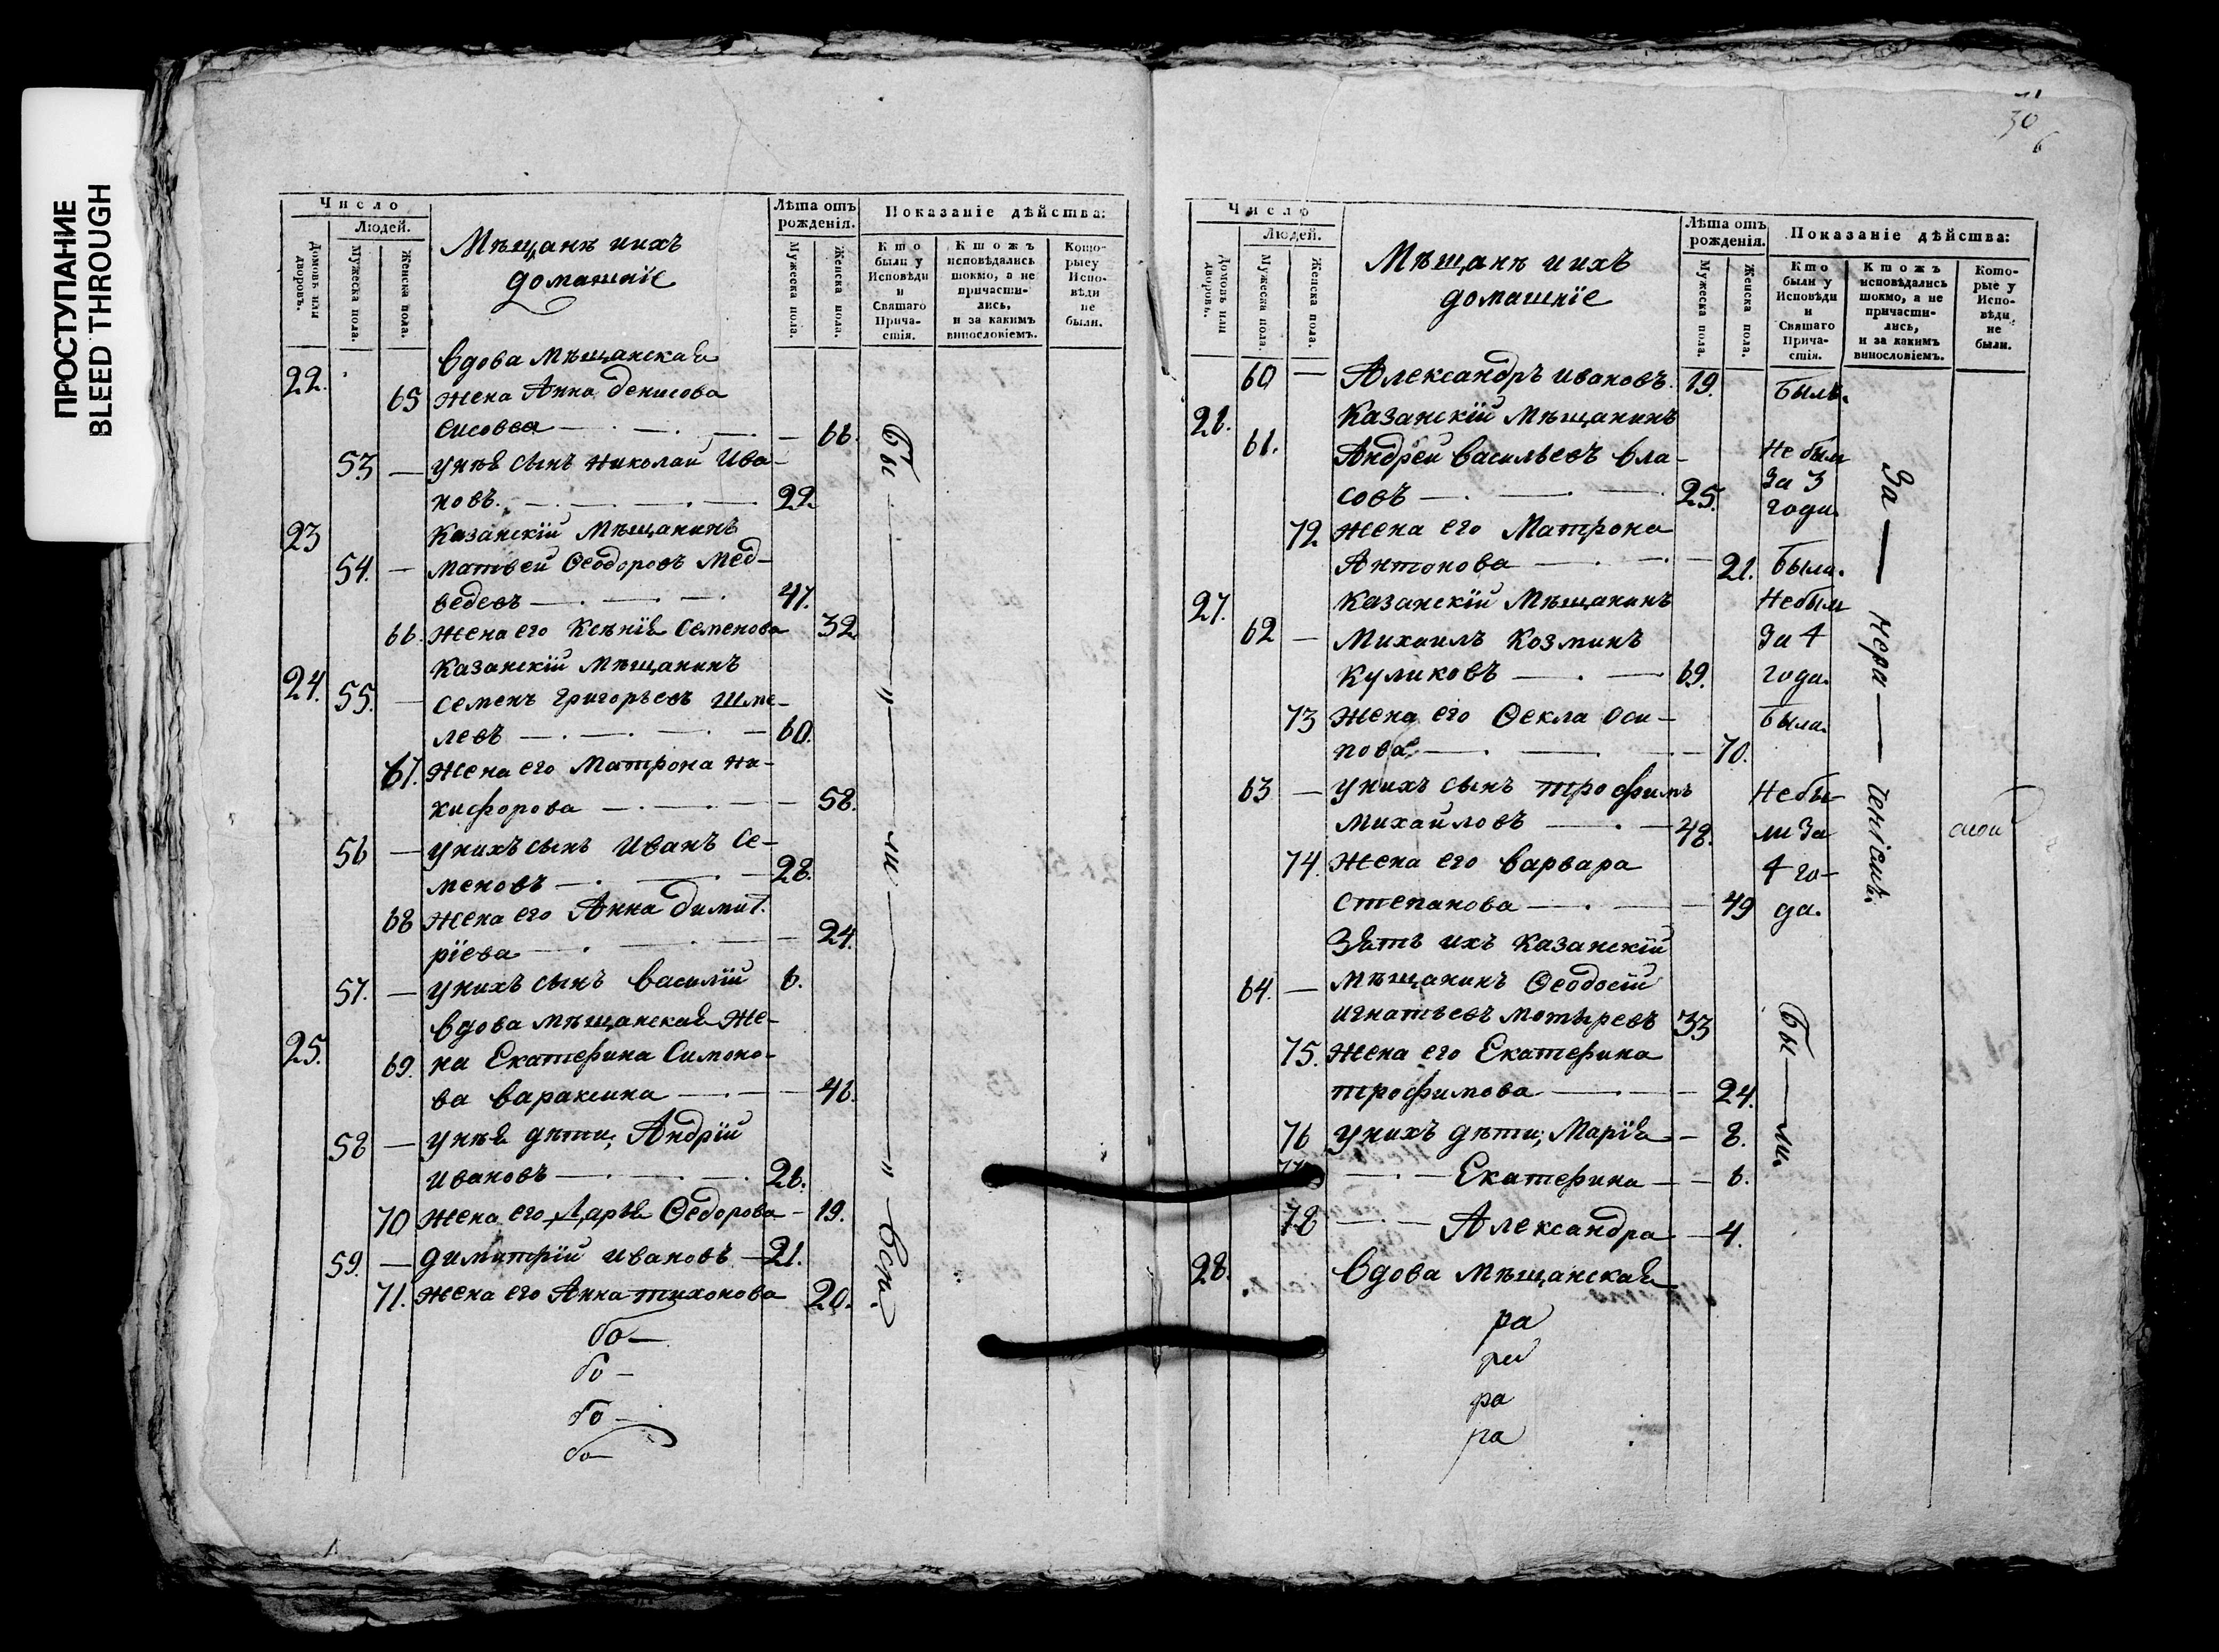 ПРОСТУПАНИЕ
BLEED THROUGH
Число
Людей.
Домовъ или дворовъ.
Мужеска пола.
Женска пола.
Мѣщанѣ иихъ
домашнїе
Лѣта отъ рожденія.
Мужеска пола.
Женска пола.
Показаніе дѣйства:
Кто были у Исповѣди и Святаго Причастія.
Ктожъ исповѣдались токмо, а не причастились, и за какимъ винословіемъ.
Которыеу Исповѣди не были.
22. вдова Мѣщанская
65 жена Анна денисова
— 66.
53 — унея сынъ Николай Ива-
новъ. 22.
23 Казанскїй Мѣщанинъ
54. — Матвей Ѳеодоровъ Мед-
ведевъ — 47.
66. жена его Ксенїя Семенова 32
24. Казанскїй Мѣщанинъ
55. — Семенъ григорьевъ Шме-
левъ — 60.
67. жена его Матрона Ни-
кифорова — 58.
56 — унихъ сынъ Иванъ Се-
меновъ — 28.
68 жена его Анна димит.
рїева — 24.
57. — унихъ сынъ Василїй 6.
25. вдова мѣщанская же-
69. на Екатерина Симоно-
ва Вараксина — 46.
58 — унея дѣти; Андрїй
Ивановъ — 26.
70 жена его Дарья Ѳедорова — 19.
59. — димитрїй Ивановъ — 21.
71. жена его Анна тихонова 20.
Бы — " — ли — " — Все.
бо —
бо —
бо —
бо —
30
6
Число
Людей.
Домовъ или дворовъ.
Мужеска пола.
Женска пола.
Мѣщанѣ иихъ
домашнїе
Лѣта отъ рожденія.
Мужеска пола.
Женска пола.
Показаніе дѣйства:
Кто были у Исповѣди и Святаго Причастія.
Ктожъ исповѣдались токмо, а не причастились, и за какимъ винословіемъ.
Которые у Исповѣди не были.
60 — Александръ Ивановъ. 19. былъ.
26. Казанскїй Мѣщанинъ
61. Андрей Васильевъ Вла- Не былъ
совъ — 25. За 3 года.
72 жена его Матрона
Антонова — 21. была.
27. Казанскїй Мѣщанинъ Небылъ
62 — Михаилъ Козминъ За 4
Куликовъ — 69. года.
73 жена его Ѳекла Оси- была.
пова — 70.
63 — унихъ сынъ трофимъ Небы-
Михайловъ — 48. ли За
74. жена его Варвара 4 го-
Степанова — 49 да.
Зять ихъ Казанскїй
64. — Мѣщанинъ Ѳеодосїй
Игнатьевъ Мотыревъ 33
75. жена его Екатерина
трофимова — 24.
76 унихъ дѣти; Марїя — 8.
— Екатерина — 6.
78 — Александра — 4.
28. вдова Мѣщанская
Бы — ли.
За — нера — ченїемъ.
ра
ра
ра